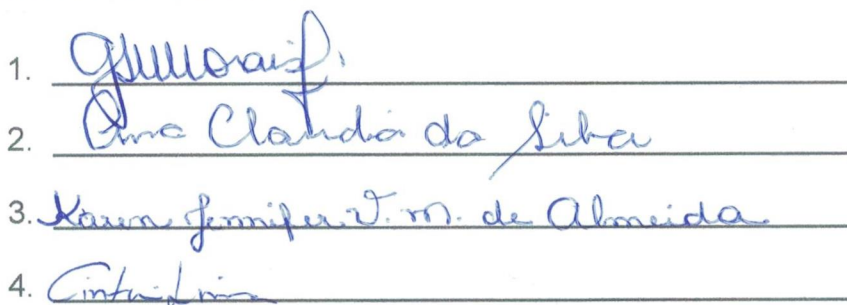 1.
2. Ana Claudia da Silva
3. Karen Jennifer V. M. de Almeida
4. Cintia Lima